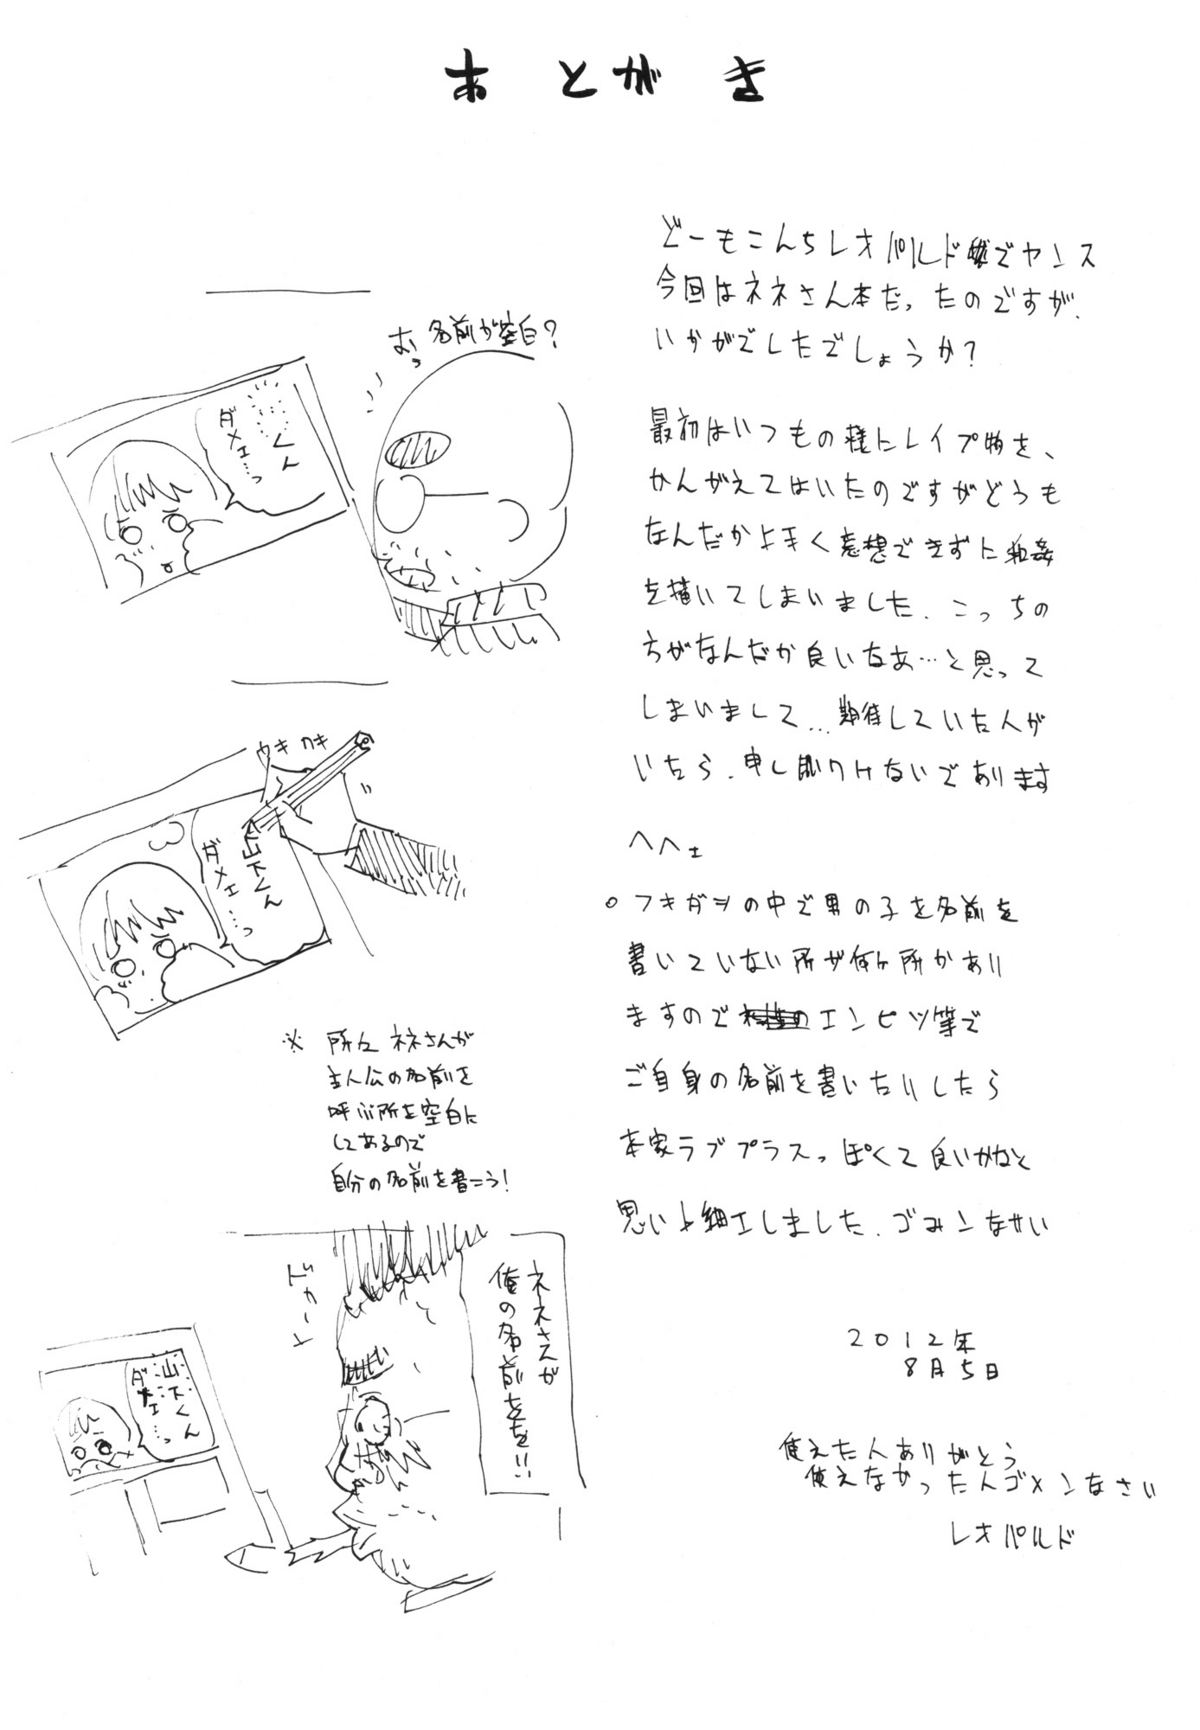 あとがき
どーもこんちレオパルドでヤンス
今回はネネさん本だったのですが、
いかがでしたでしょうか?
最初はいつもの様にレイプ物を、
かんがえてはいたのですがどうも
なんだか上手く意想できずに和姦
を描いてしまいました。こっちの
方がなんだか良いなあ…と思って
しまいまして…期待していた人が
いたら、申し訳けないであります
へへェ
○フキダシの中で男の子を名前を
書いていない所が何ヶ所かあり
ますのでエンピツ等で
ご自身の名前を書いたりしたら
本家ラブプラスっぽくて良いかなと
思い小細工しました。ゴメンなサい
2012年
8月5日
使えた人ありがとう
使えなかった人ゴメンなさい
レオパルド
むっ
名前が空白?
くん
ダメェ…っ
カキカキ
山下くん
ダメェ…っ
※所々ネネさんが
主人公の名前を
呼ぶ所を空白に
してあるので
自分の名前を書こう!
ネネさんが
俺の名前をを!!
山下くん
ダメェ…っ